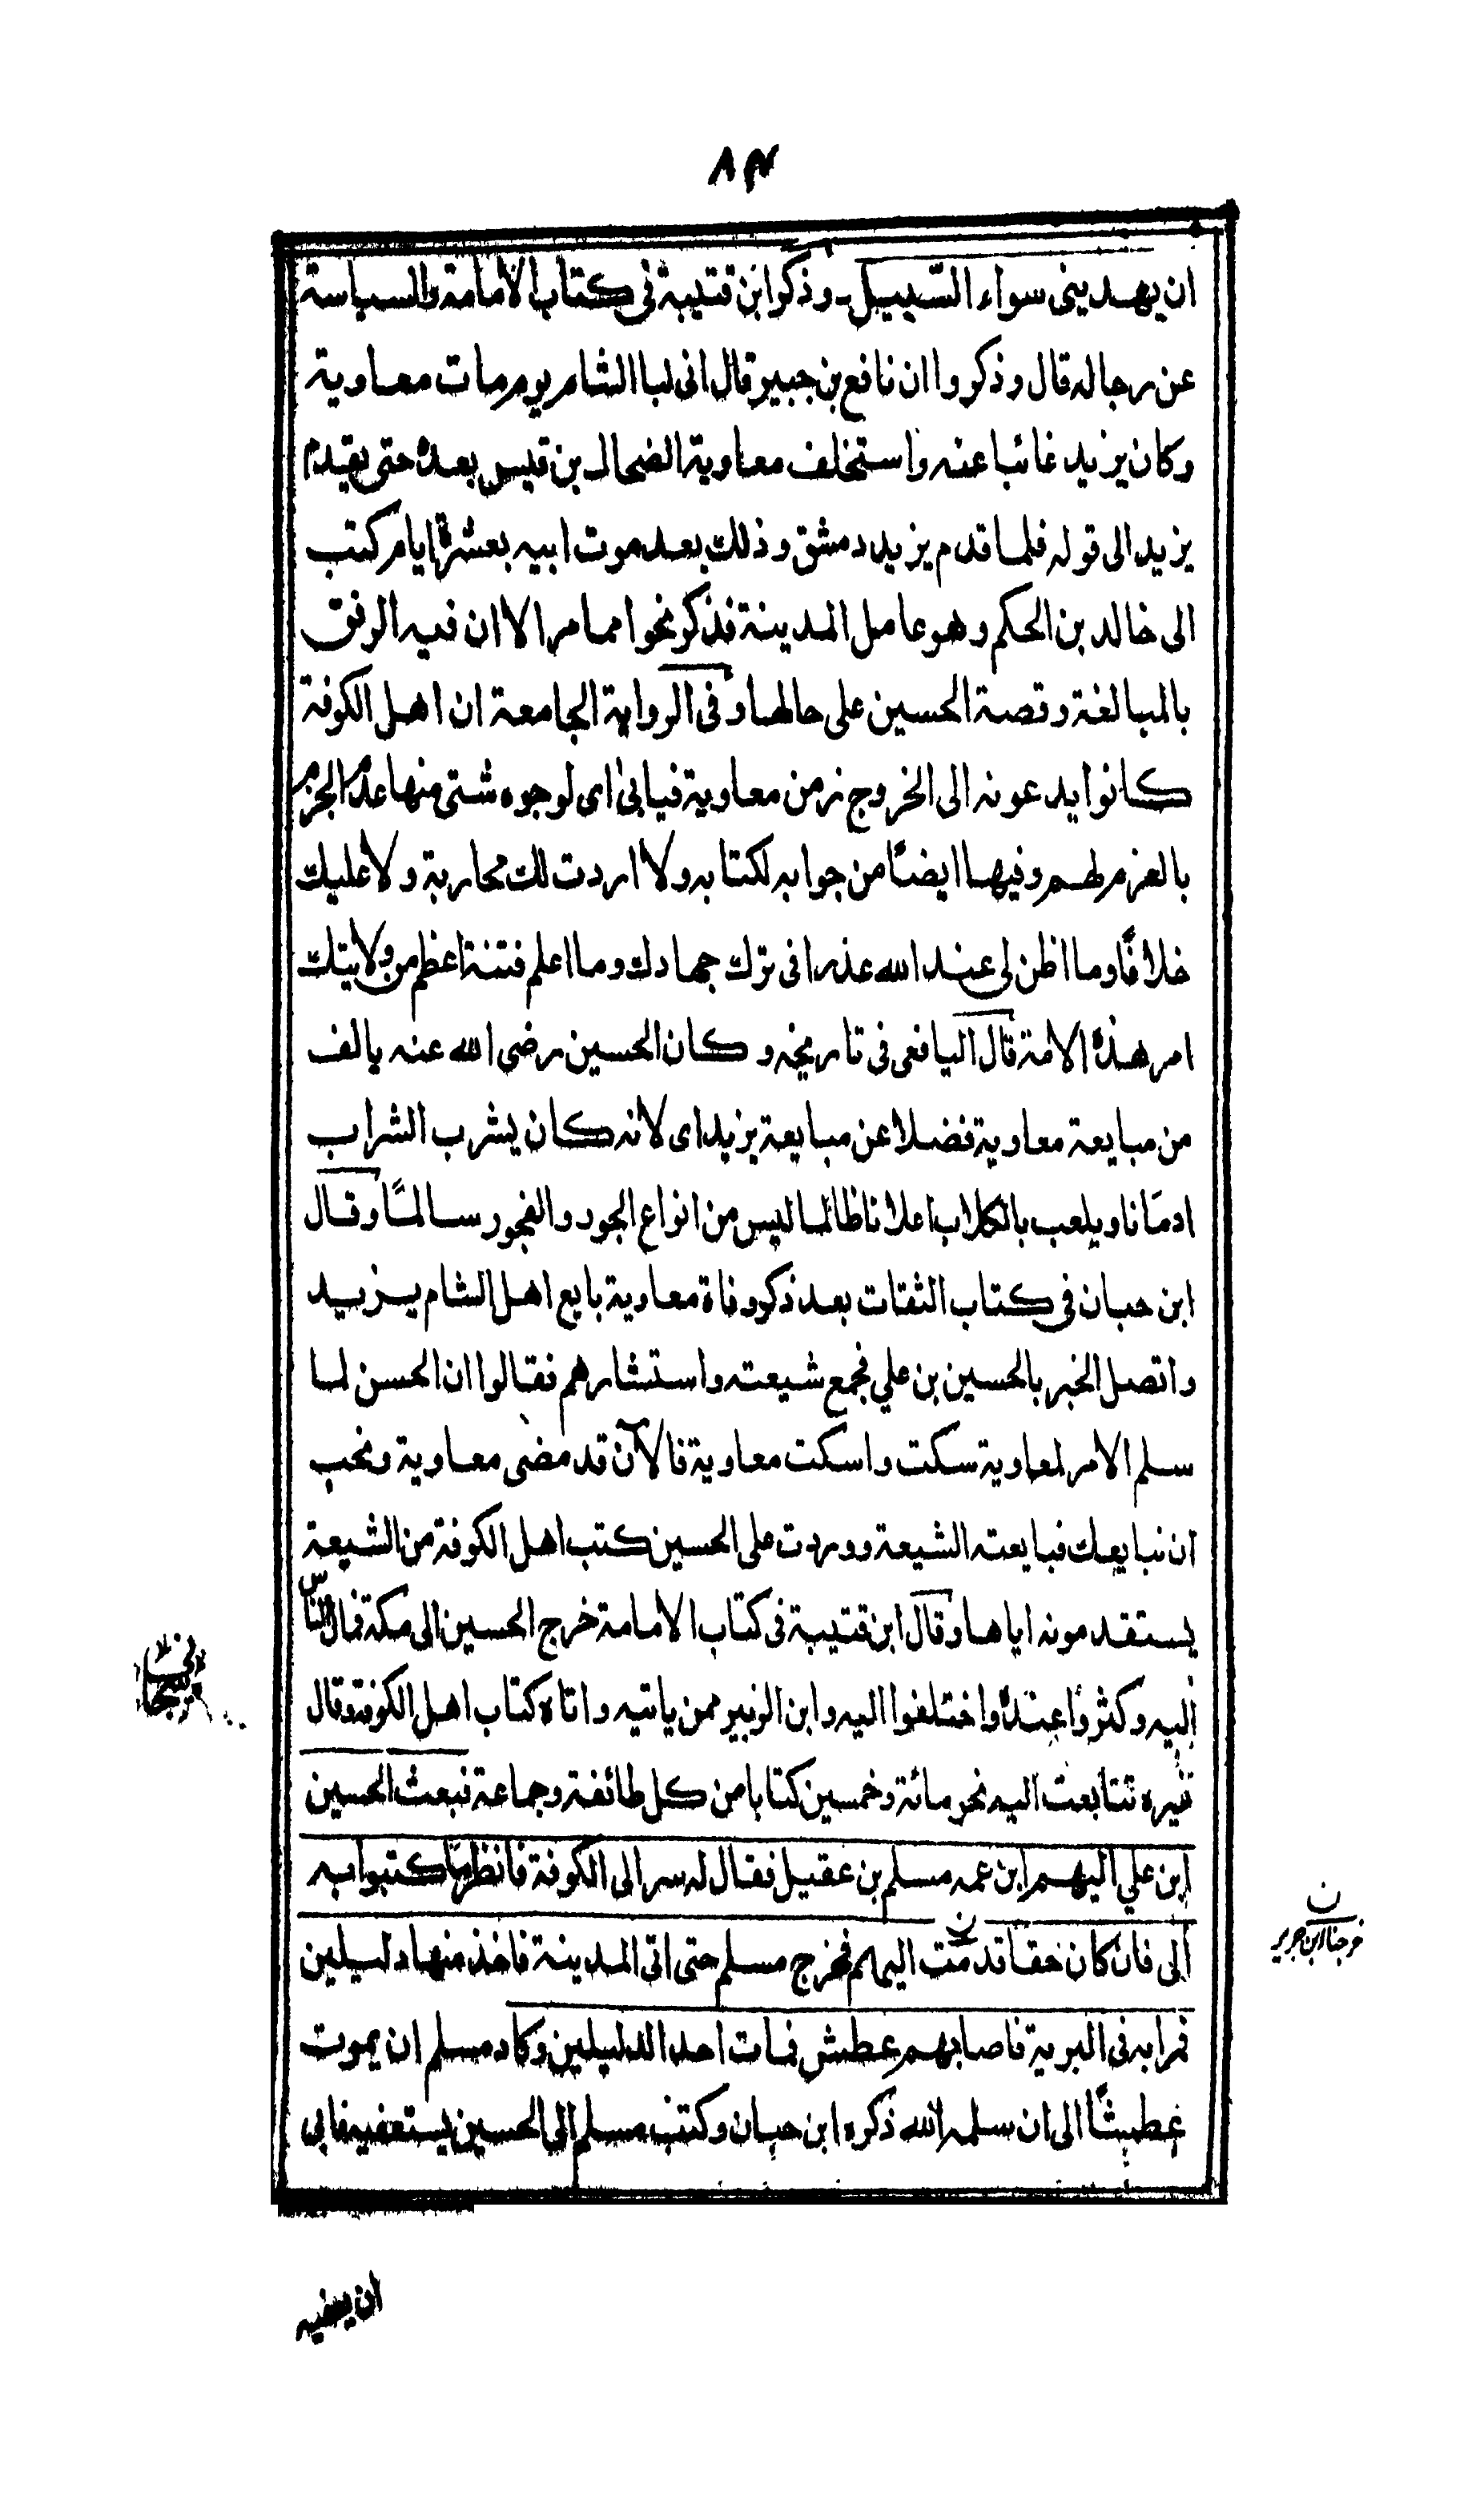 ٨٣
ان يهديني سواء السّبيل ـ وذكر ابن قتيبة في كتاب الامامة والسياسة
عن رجاله قال وذكروا ان نافع بن جبير قال انى لبا الشام يوم مات معاوية
وكان يزيد غائبا عنه واستخلف معاوية الضحاك بن قيس بعده حتى يقدم
يزيد الى قوله فلما قدم يزيد دمشق وذلك بعد موت ابيه بعشرة ايام كتب
الى خالد بن الحكم وهو عامل المدينة فذكر نحوا مما مر الا ان فيه الرفق
بالمبالغة وقصة الحسين على حالها وفى الرواية الجامعة ان اهل الكوفة
كانوا يدعونه الى الخروج زمن معاوية فيابى اى لوجوه شتى منها عدم الجزم
بالعزم لهم وفيها ايضًا من جوابه لكتابه ولا اردت لك محاربة ولا عليك
خلافًا وما اظن لى عند الله عذرا فى ترك جهادك وما اعلم فتنة اعظم من ولايتك
امر هذه الامة قال اليافعى فى تاريخه و كان الحسين رضى الله عنه يالف
من مبايعة معاوية فضلا عن مبايعة يزيد اى لانه كان يشرب الشراب
ادمَانا ويلعب بالكلاب اعلانا ظالما ليس من انواع الجود والفجور سالمًا وقال
ابن حبان فى كتاب الثقات بعد ذكر وفاة معاوية بايع اهل الشام يزيد
واتصل الخبر بالحسين بن علي فجمع شيعته واستشارهم فقالوا ان الحسن لما
سلم الامر لمعاوية سكت واسكت معاوية فالآن قد مضى معاوية ونحب
ان نبايعك فبايعته الشيعة ووردت على الحسين كتب اهل الكوفة من الشيعة
يستقدمونه اياها وقال ابن قتيبة فى كتاب الامامة خرج الحسين الى مكة فمال النّاس
اليه وكثروا عنده واختلفوا اليه وابن الزبير ممن ياتيه واتاه كتاب اهل الكوفة وقال
غيره تتابعت اليه نحو مائة وخمسين كتابا من كل طائفة وجماعة فبعث الحسين
ابن علي اليهم ابن عمه مسلم بن عقيل فقال له سر الى الكوفة فانظر ما كتبوا به
الى فان كان حقا قدمت اليهم فخرج مسلم حتى اتى المدينة فاخذ منها دليلين
ن
خرجنا ابن جرير
فمرا به فى البرية فاصابهم عطش فمات احد الدليلين وكاد مسلم ان يموت
عطشًا الى ان سلمه الله ذكره ابن حبان وكتب مسلم الى الحسين يستعفيه فابى
ان يعفيه